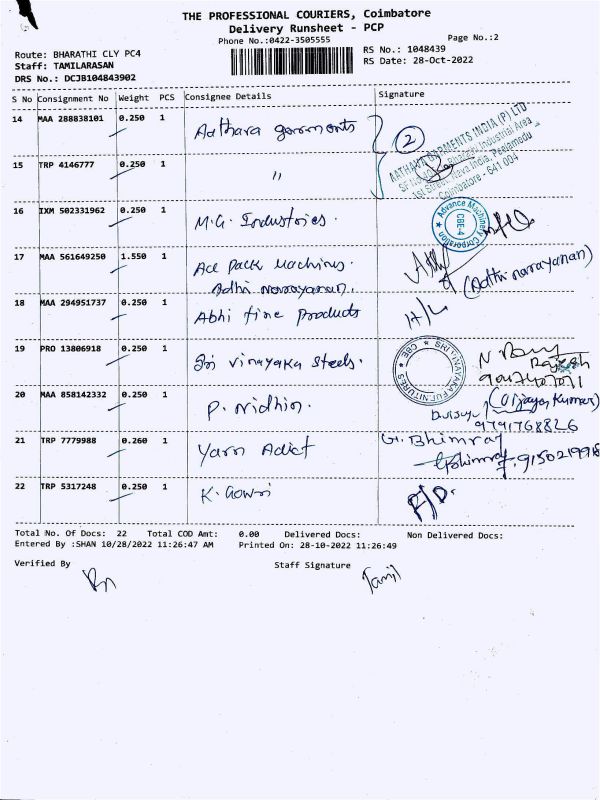 THE PROFESSIONAL COURIERS, Coimbatore
Delivery Runsheet - PCP
Phone No.:0422-3505555
Page No.:2
Route: BHARATHI CLY PC4
RS No.: 1048439
Staff: TAMILARASAN
RS Date: 28-Oct-2022
DRS No.: DCJB104843902
S No Consignment No Weight PCS Consignee Details Signature
14 MAA 288838101 0.250 1 Aathava garments 2
AATHAVA GARMENTS INDIA (P) LTD
Coimbatore - 641 004
15 TRP 4146777 0.250 1 "
16 IXM 502331962 0.250 1 M.G. Industries.
Advance Machinery Corporation
CBE-4
17 MAA 561649250 1.550 1 Ace Pack Machines.
Adhi Narayanan. (Adhi narayanan)
18 MAA 294951737 0.250 1 Abhi fine Products
19 PRO 13806918 0.250 1 Sri vinayaka steels.
SRI VINAYAKA FURNITURES ★ CBE ★
20 MAA 858142332 0.250 1 P. Nidhin. (Vijaya Kumar)
9791768826
21 TRP 7779988 0.260 1 Yarn Adict G. Bhimraj
22 TRP 5317248 0.250 1 K. Gowri
Total No. Of Docs: 22 Total COD Amt: 0.00 Delivered Docs: Non Delivered Docs:
Entered By :SHAN 10/28/2022 11:26:47 AM Printed On: 28-10-2022 11:26:49
Verified By Staff Signature
Tamil